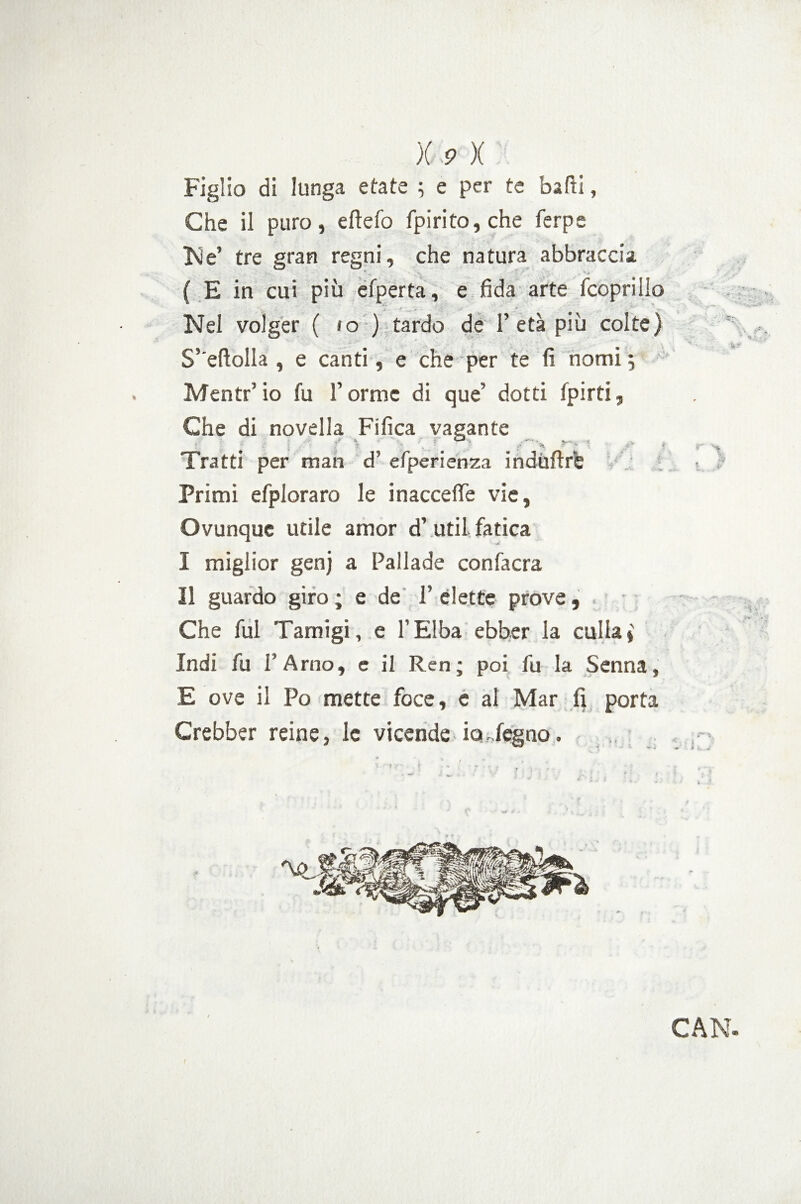 )( 9 )(
Figlio di lunga etate ; e per te baſti,
Che il puro, eſteſo ſpirito, che ſerpe
Ne' tre gran regni, che natura abbraccia
( E in cui più eſperta, e fida arte ſcoprillo
Nel volger ( 10 ) tardo de l'età più colte)
S'eſtolla , e canti, e che per te ſi nomi;
Mentr'io ſu l'orme di que' dotti ſpirti,
Che di novella Fiſica vagante
Tratti per man d'eſperienza induſtre
Primi eſploraro le inacceſſe vie,
Ovunque utile amor d'util fatica
I miglior genj a Pallade conſacra
Il guardo giro; e de l'elette prove,
Che ſul Tamigi, e l'Elba ebber la culla;
Indi ſu l'Arno, e il Ren; poi ſu la Senna,
E ove il Po mette foce, e al Mar ſi porta
Crebber reine, le vicende io ſegno.
CAN-